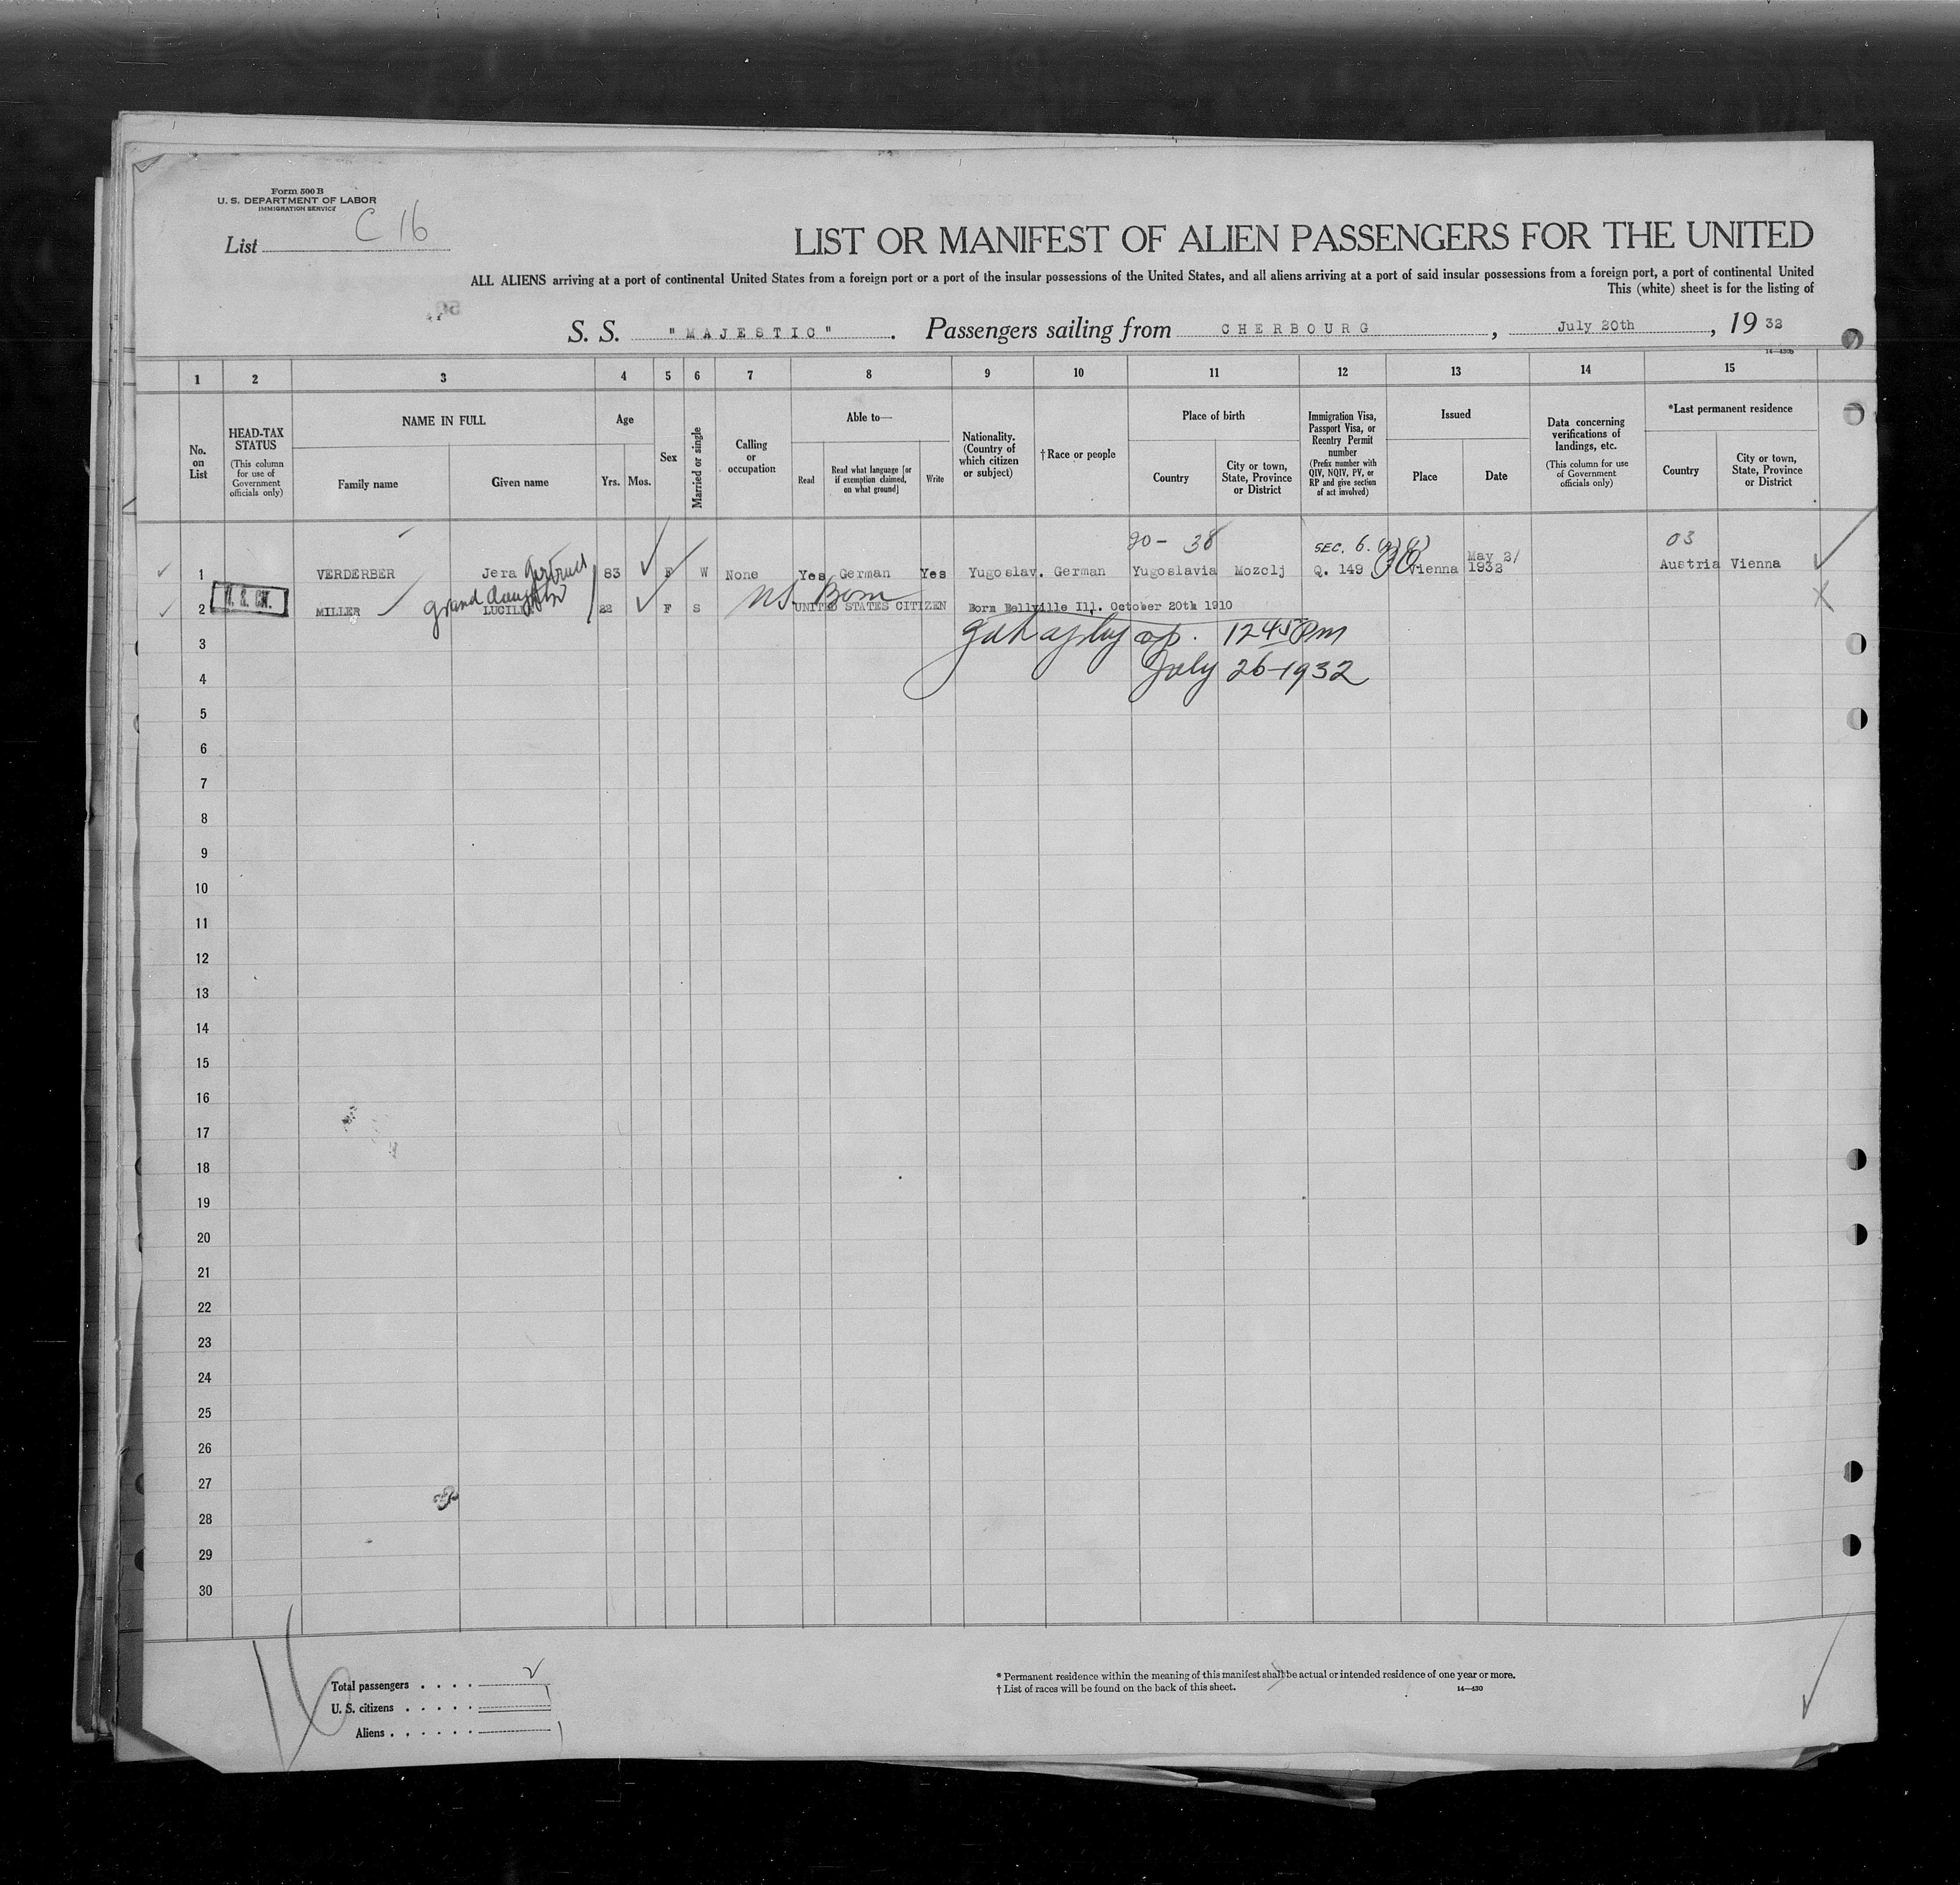 Form 500 B
U. S. DEPARTMENT OF LABOR
IMMIGRATION SERVICE
List C 16
LIST OR MANIFEST OF ALIEN PASSENGERS FOR THE UNITED
ALL ALIENS arriving at a port of continental United States from a foreign port or a port of the insular possessions of the United States, and all aliens arriving at a port of said insular possessions from a foreign port, a port of continental United
This (white) sheet is for the listing of
S. S. "MAJESTIC". Passengers sailing from CHERBOURG, July 20th, 19 32
1 2 3 4 5 6 7 8 9 10 11 12 13 14 15
No. on List
HEAD-TAX STATUS (This column for use of Government officials only)
NAME IN FULL
Family name Given name
Age
Yrs. Mos.
Sex
Married or single
Calling or occupation
Able to—
Read Read what language [or if exemption claimed, on what ground] Write
Nationality. (Country of which citizen or subject)
†Race or people
Place of birth
Country City or town, State, Province or District
Immigration Visa, Passport Visa, or Reentry Permit number (Prefix number with QIV, NQIV, PV, or RP and give section of act involved)
Issued
Place Date
Data concerning verifications of landings, etc. (This column for use of Government officials only)
*Last permanent residence
Country City or town, State, Province or District
20- 38 SEC. 6. 03
1 VERDERBER Jera Gertrud 83 F W None Yes German Yes Yugoslav. German Yugoslavia Mozclj Q. 149 Vienna May 2/ 1932 Austria Vienna
grand daughter US Born
2 MILLER LUCILE 22 F S UNITED STATES CITIZEN Born Bellville Ill. October 20th 1910
3 1245 Pm
4 July 26-1932
5
6
7
8
9
10
11
12
13
14
15
16
17
18
19
20
21
22
23
24
25
26
27
28
29
30
16
Total passengers . . . . 2
U. S. citizens . . . . . 1
Aliens . . . . . . 1
* Permanent residence within the meaning of this manifest shall be actual or intended residence of one year or more.
† List of races will be found on the back of this sheet. 14—430